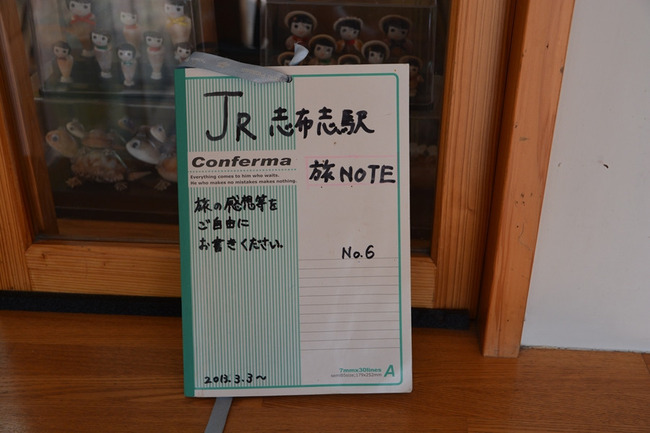 JR 志布志駅
Conferma
Everything comes to him who waits.
He who makes no mistakes makes nothing.
旅NOTE
旅の感想等を
ご自由に
お書きください。
No.6
2013.3.3～
7mm×30lines
A